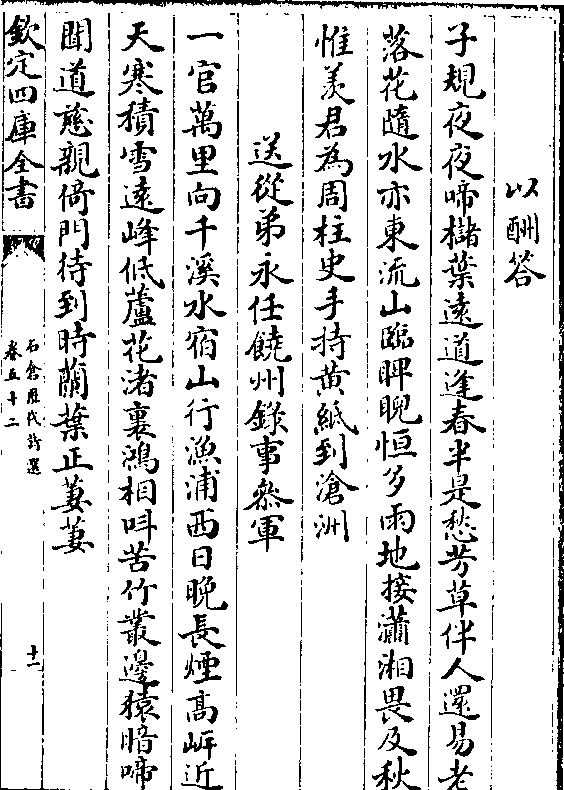 以酬答
子規夜夜啼櫧葉遠道逢春半是愁芳草伴人還易老
落花隨水亦東流山臨睥睨恒多雨地接瀟湘畏及秋
惟羨君為周柱史手持黄紙到滄洲
送從弟永任饒州錄事叅軍
一官萬里向千溪水宿山行漁浦西日晚長煙髙㟁近
天寒積雪遠峰低蘆花渚裏鴻相呌苦竹叢邊猿暗啼
聞道慈親倚門待到時蘭葉正萋萋
欽定四庫全書
石倉歷代詩選
卷五十二
十一